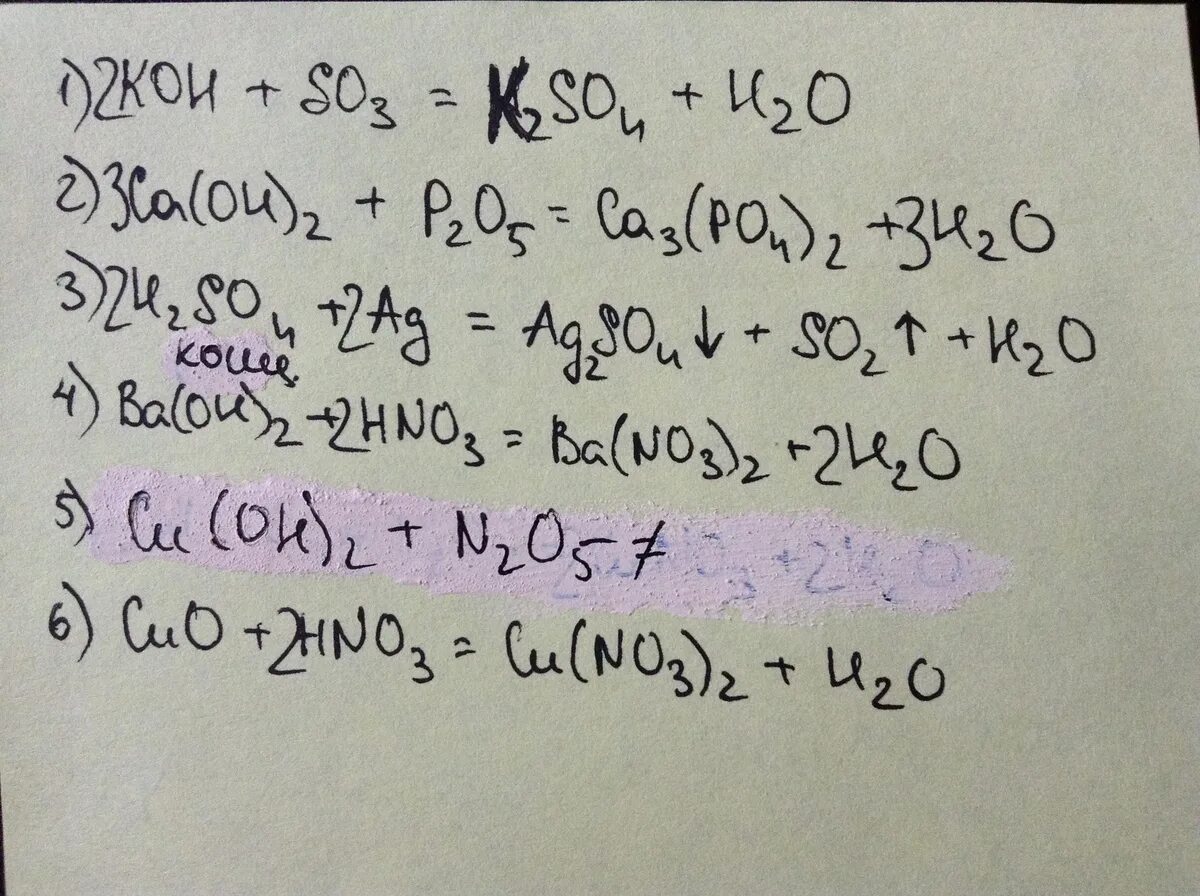 1) 2KOH + SO₃ = K₂SO₄ + H₂O
2) 3Ca(OH)₂ + P₂O₅ = Ca₃(PO₄)₂ + 3H₂O
3) 2H₂SO₄ + 2Ag = Ag₂SO₄↓ + SO₂↑ + H₂O
конц.
4) Ba(OH)₂ + 2HNO₃ = Ba(NO₃)₂ + 2H₂O
5) Cu(OH)₂ + N₂O₅ ≠
6) CuO + 2HNO₃ = Cu(NO₃)₂ + H₂O